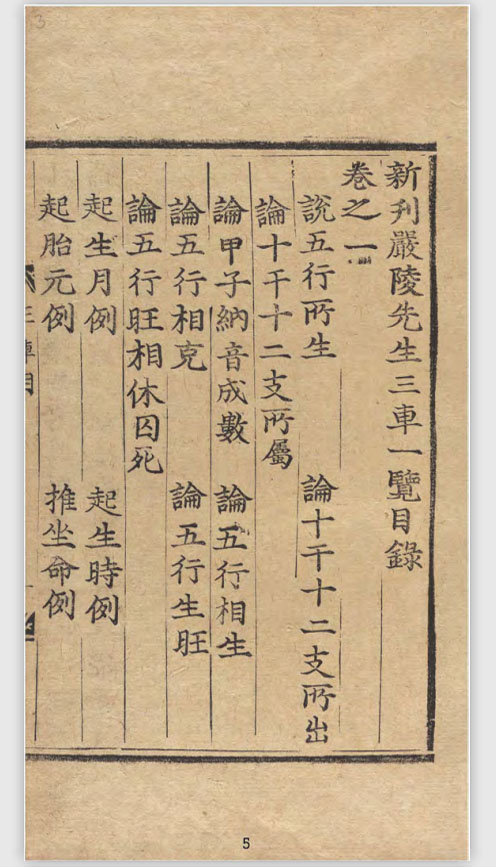 新刋嚴陵先生三車一覽目錄
卷之一
說五行所生　論十干十二支所出
論十干十二支所屬
論甲子納音成數　論五行相生
論五行相克　論五行生旺
論五行旺相休囚死
起生月例　起生時例
起胎元例　推坐命例
5